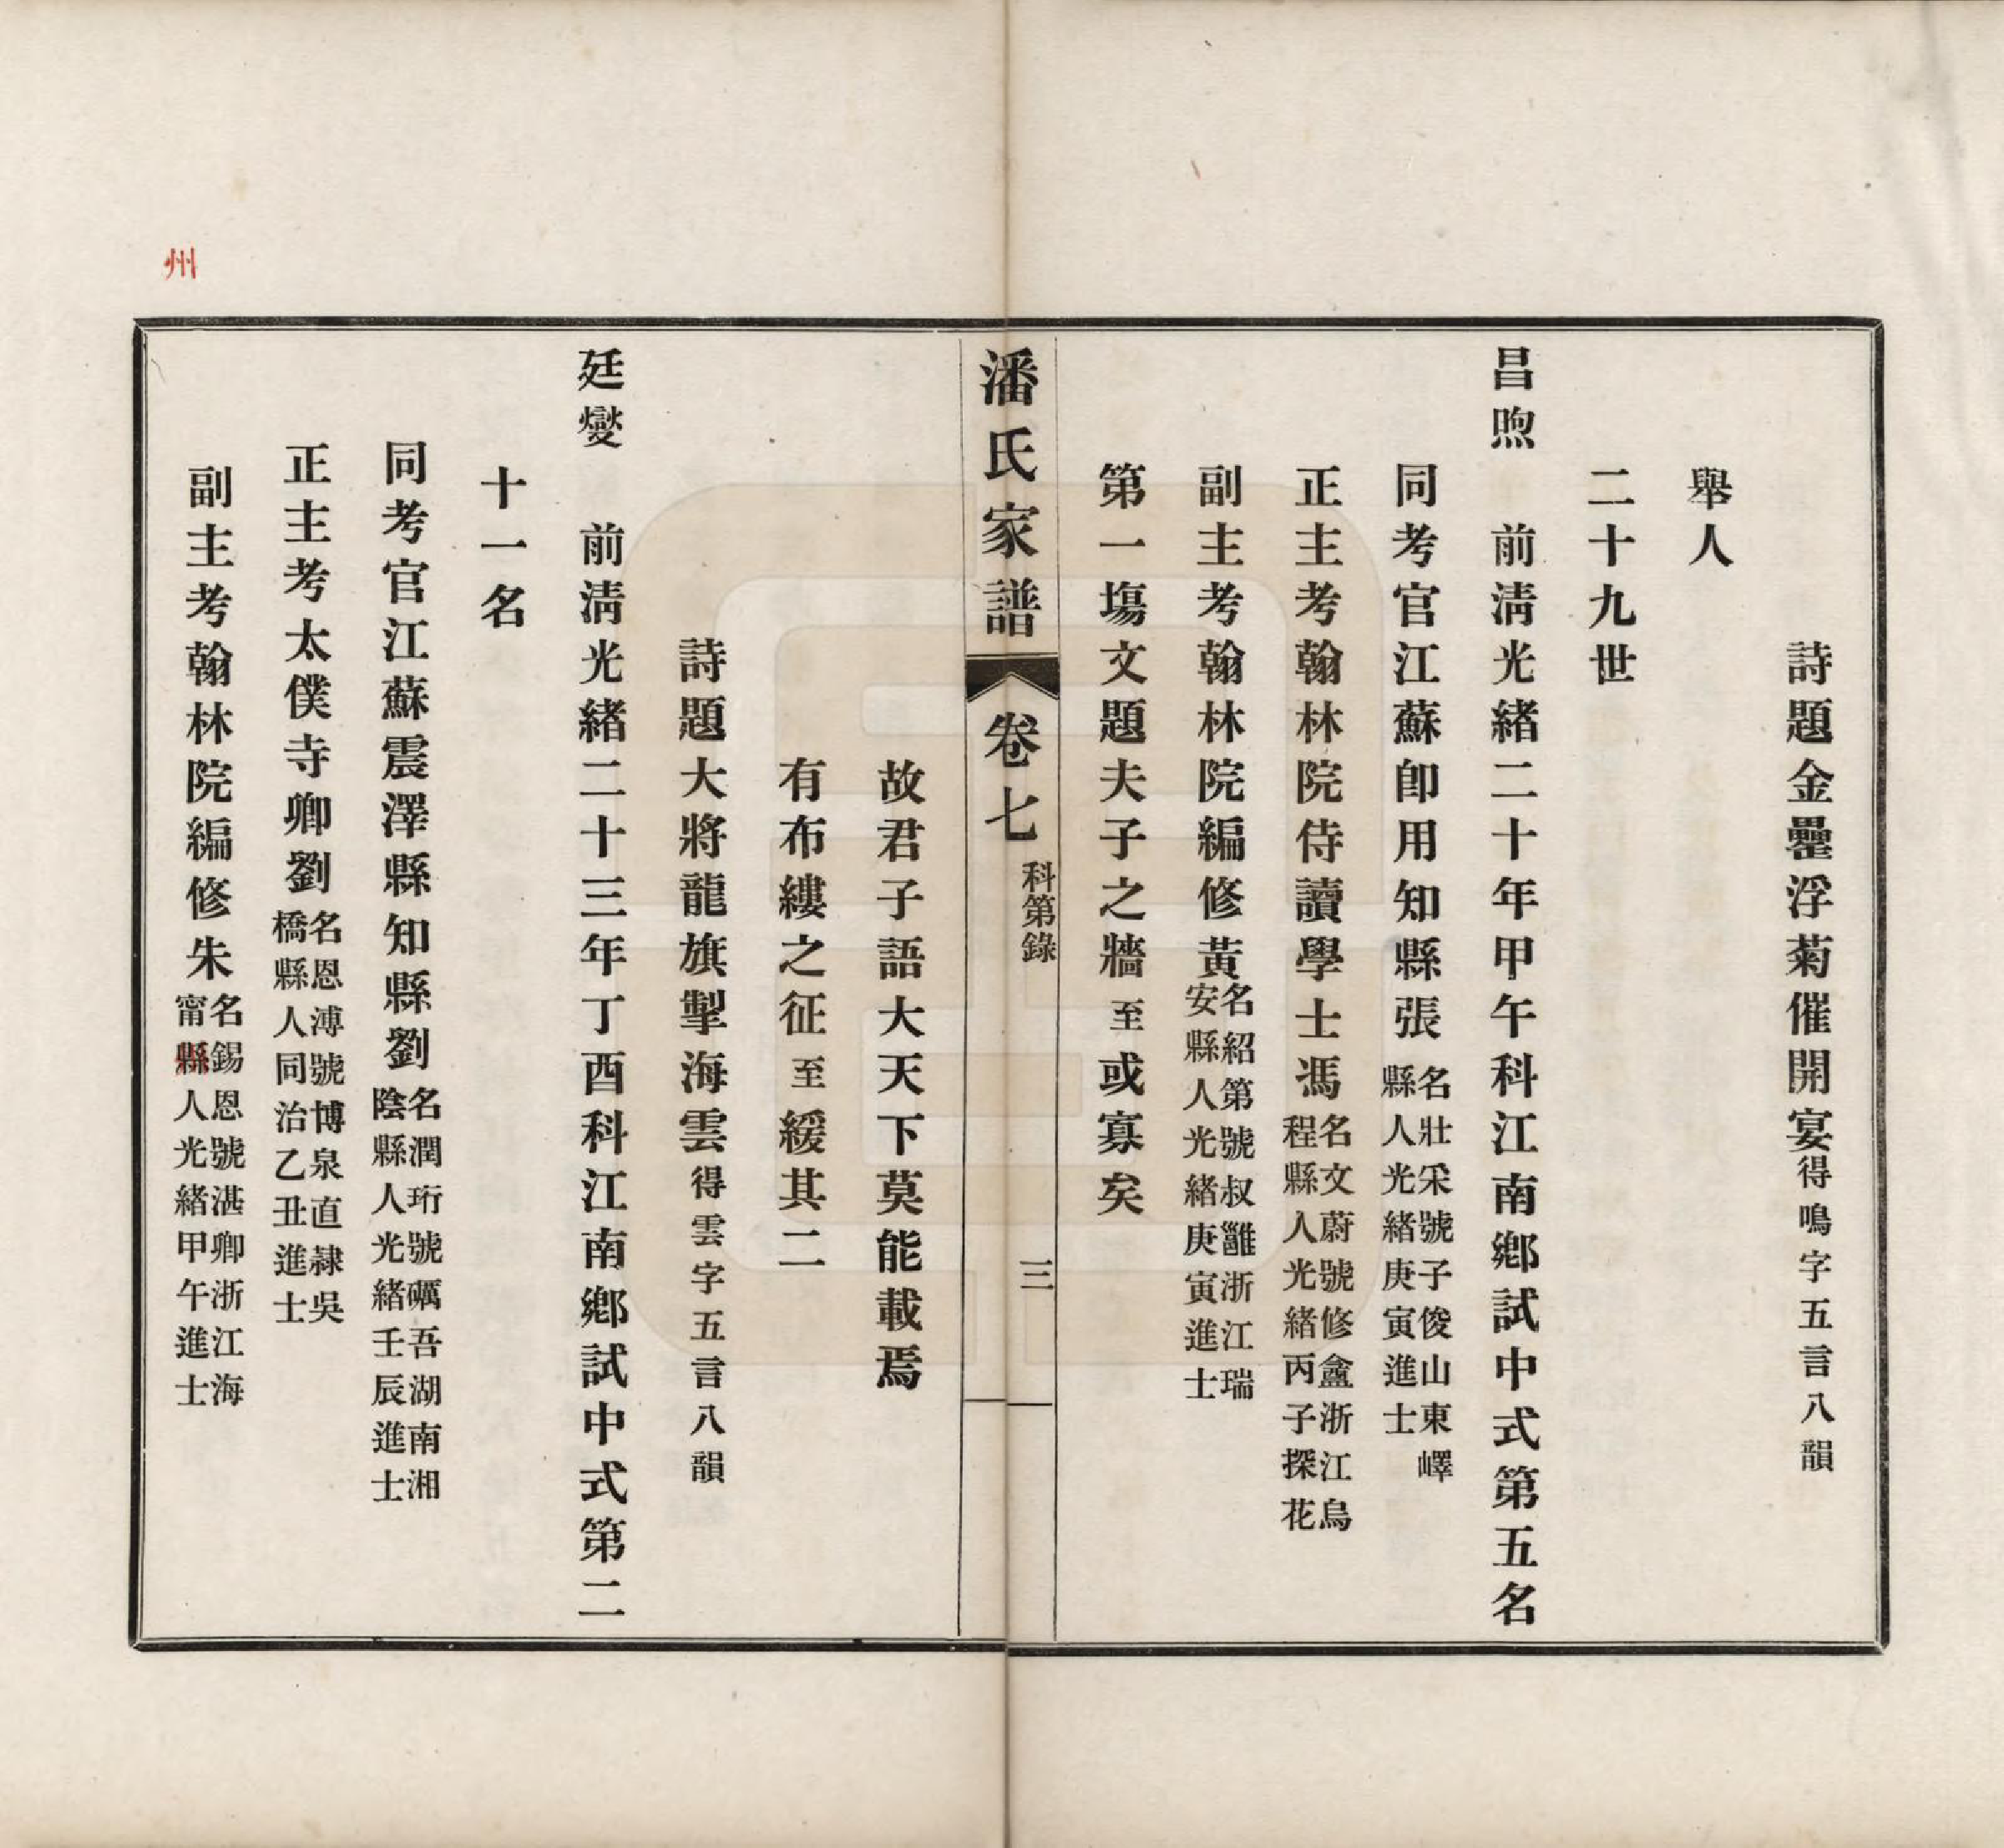 詩題金罍浮菊催開宴得鳴字五言八韻
舉人
二十九世
昌煦　前清光緒二十年甲午科江南鄉試中式第五名
同考官江蘇卽用知縣張名壯采號子俊山東嶧縣人光緒庚寅進士
正主考翰林院侍讀學士馮名文蔚號修盦浙江烏程縣人光緒丙子探花
副主考翰林院編修黃名紹第號叔雝浙江瑞安縣人光緒庚寅進士
第一塲文題夫子之牆至或寡矣
潘氏家譜　卷七　科第錄　三
故君子語大天下莫能載焉
有布縷之征至緩其二
詩題大將龍旗掣海雲得雲字五言八韻
廷燮　前清光緒二十三年丁酉科江南鄉試中式第二
十一名
同考官江蘇震澤縣知縣劉名潤珩號礪吾湖南湘陰縣人光緒壬辰進士
正主考太僕寺卿劉名恩溥號博泉直隸吳橋縣人同治乙丑進士
副主考翰林院編修朱名錫恩號湛卿浙江海甯縣人光緒甲午進士
州